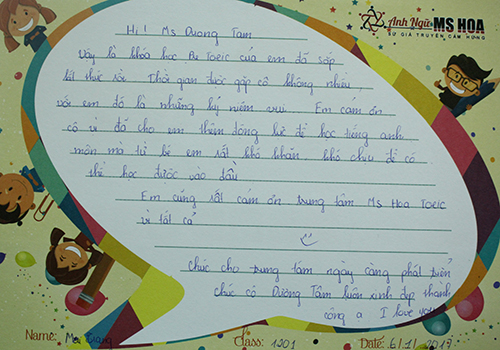 Anh Ngữ MS HOA
SỨ GIẢ TRUYỀN CẢM HỨNG
Hi! Ms Duong Tam
Vậy là khóa học Pu Toeic của em đã sắp
kết thúc rồi. Thời gian được gặp cô không nhiều
với em đó là những kỷ niệm vui. Em cảm ơn
cô vì đã cho em thêm động lực để học tiếng anh
môn mà từ bé em rất khó khăn khó chịu để có
thể học được vào đầu
Em cũng rất cảm ơn trung tâm Ms Hoa Toeic
vì tất cả
chúc cho trung tâm ngày càng phát triển
chúc cô Dương Tâm luôn xinh đẹp thành
công ạ I love you
Name: Mai Trang Class: 1201 Date: 6/1/2017